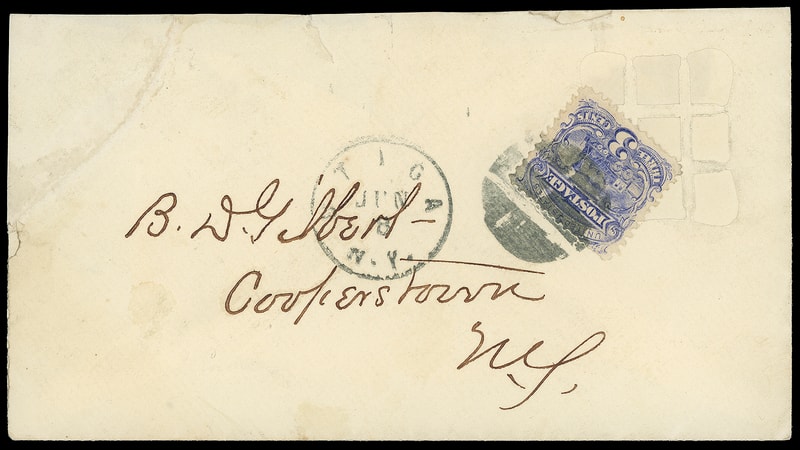 UTICA
JUN
8
N.Y.
THREE CENTS
3
POSTAGE
B. D. Gilbert –
Cooperstown
N.Y.